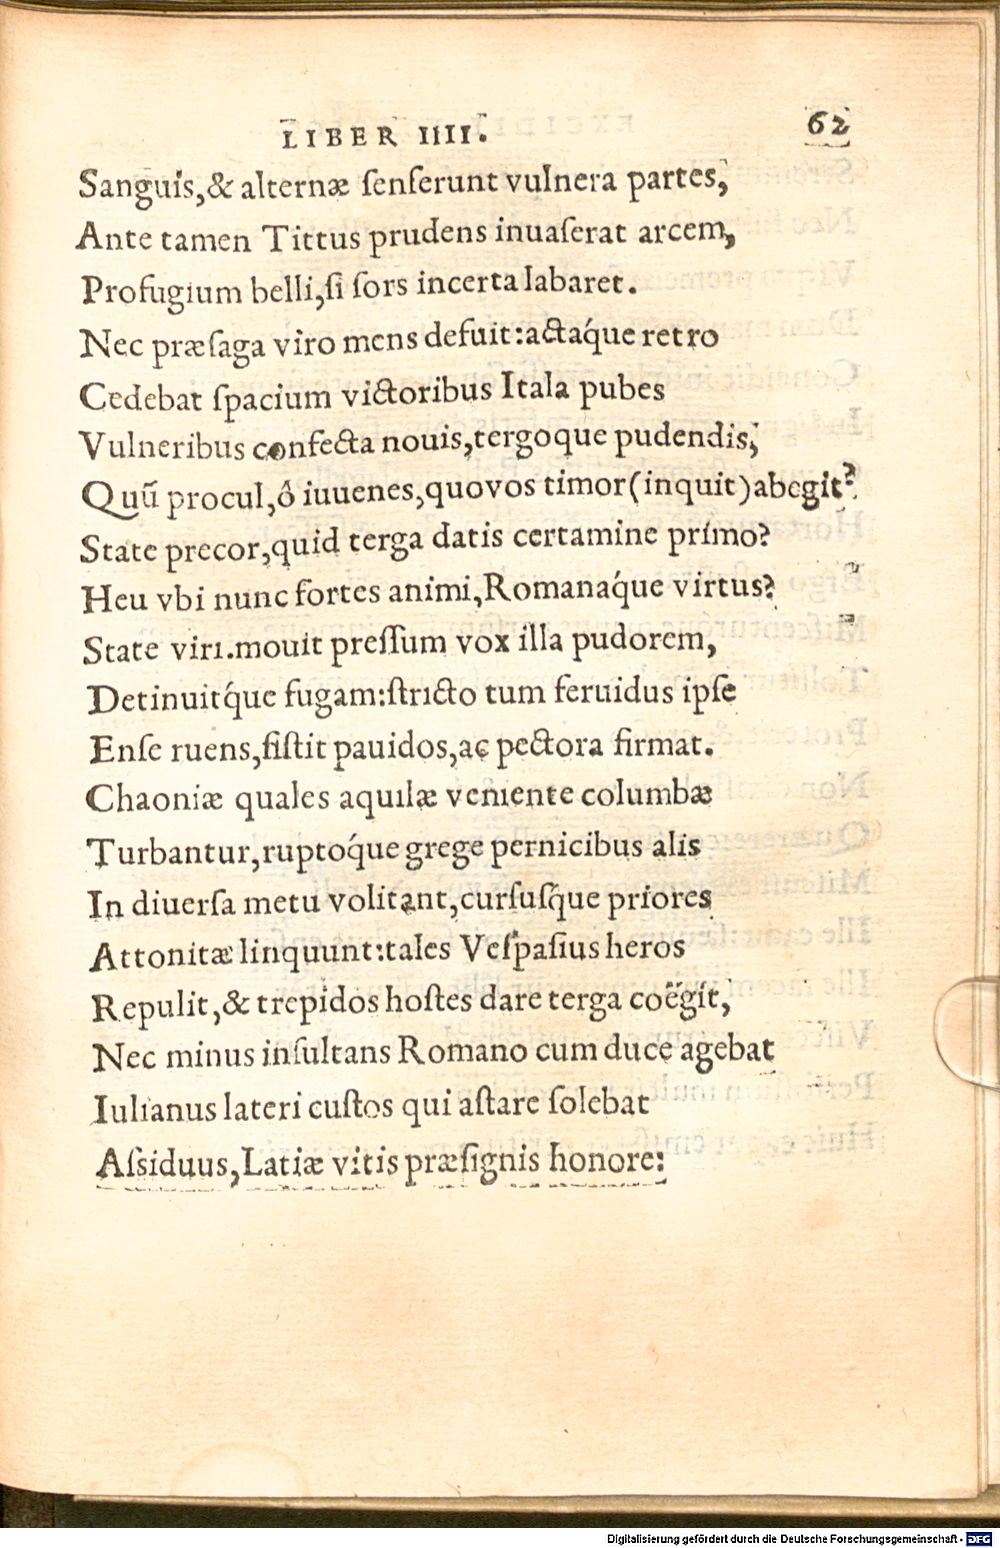 LIBER IIII. 62
Sanguis,& alternæ ſenſerunt vulnera partes,
Ante tamen Tittus prudens inuaſerat arcem,
Profugium belli,ſi ſors incerta labaret.
Nec præſaga viro mens defuit:actáque retro
Cedebat ſpacium victoribus Itala pubes
Vulneribus confecta nouis,tergoque pudendis,
Quū procul,ô iuuenes,quovos timor(inquit)abegit?
State precor,quid terga datis certamine prímo?
Heu vbi nunc fortes animi,Romanáque virtus?
State viri.mouit preſſum vox illa pudorem,
Detinuitq́ue fugam:ſtricto tum feruidus ipſe
Enſe ruens,ſiſtit pauidos,ac pectora firmat.
Chaoniæ quales aquilæ veniente columbæ
Turbantur,ruptóque grege pernicibus alis
In diuerſa metu volitant,curſuſq́ue priores
Attonitæ linquunt:tales Veſpaſius heros
Repulit,& trepidos hoſtes dare terga coëgit,
Nec minus inſultans Romano cum duce agebat
Iulianus lateri cuſtos qui aſtare ſolebat
Aſsiduus,Latiæ vitis præſignis honore:
Digitalisierung gefördert durch die Deutsche Forschungsgemeinschaft - DFG